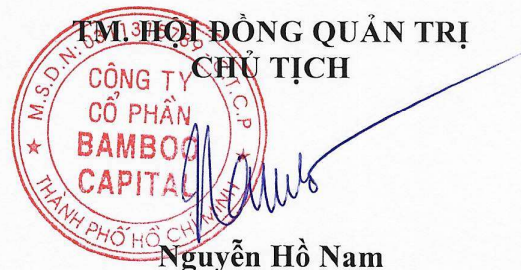 TM. HỘI ĐỒNG QUẢN TRỊ
CHỦ TỊCH
CÔNG TY
CỔ PHẦN
BAMBOO
CAPITAL
THÀNH PHỐ HỒ CHÍ MINH
Nguyễn Hồ Nam